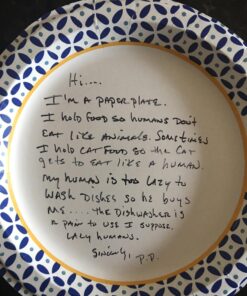 Hi....
I'm a paper plate.
I hold food so humans don't
eat like animals. Sometimes
I hold cat food so the cat
gets to eat like a human.
My human is too lazy to
wash dishes so he buys
me..... The dishwasher is
a pain to use I suppose.
Lazy humans.
Sincerely,
P.P.